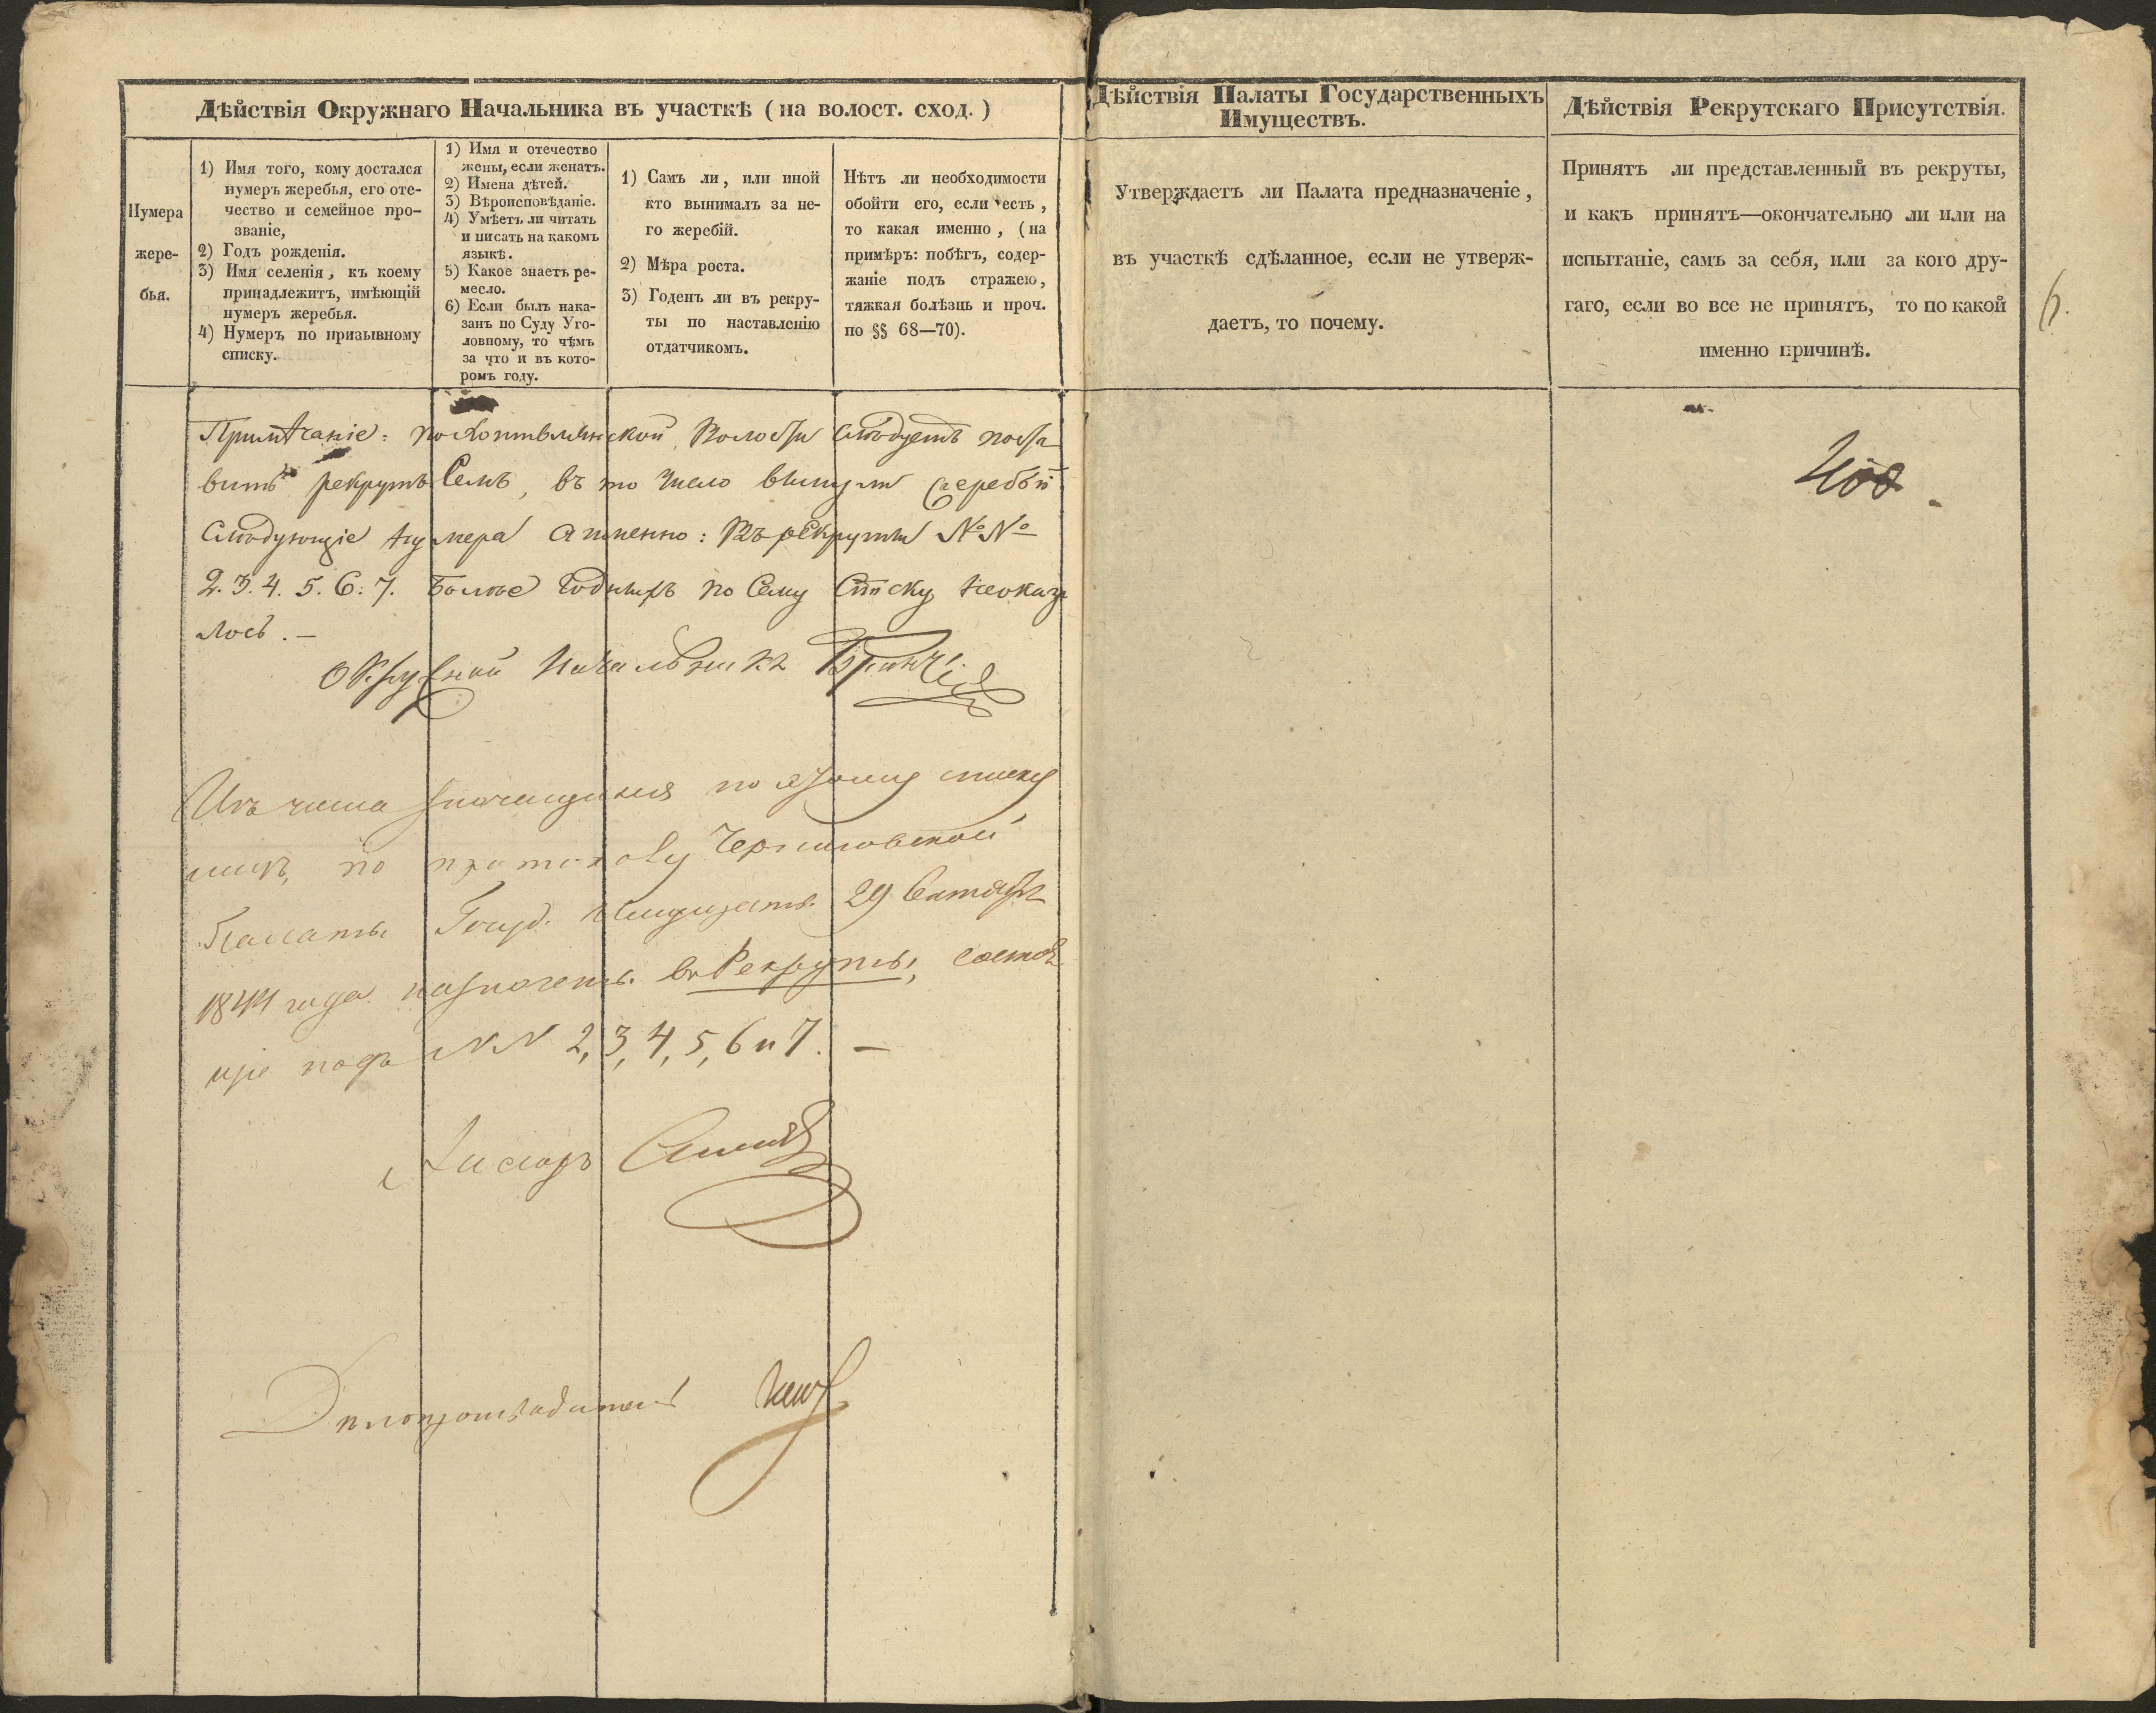 Дѣйствія Окружнаго Начальника въ участкѣ (на волост. сход.)
Нумера
жере-
бья.
1) Имя того, кому достался
нумеръ жеребья, его оте-
чество и семейное про-
званіе,
2) Годъ рожденія.
3) Имя селенія, къ коему
принадлежитъ, имѣющій
нумеръ жеребья.
4) Нумеръ по призывному
списку.
1) Имя и отечество
жены, если женатъ.
2) Имена дѣтей.
3) Вѣроисповѣданіе.
4) Умѣетъ ли читать
и писать на какомъ
языкѣ.
5) Какое знаетъ ре-
месло.
6) Если былъ нака-
занъ по Суду Уго-
ловному, то чѣмъ
за что и въ кото-
ромъ году.
1) Самъ ли, или иной
кто вынималъ за не-
го жеребій.
2) Мѣра роста.
3) Годенъ ли въ рекру-
ты по наставленію
отдатчикомъ.
Нѣтъ ли необходимости
обойти его, если есть,
то какая именно, (на
примѣръ: побѣгъ, содер-
жаніе подъ стражею,
тяжкая болѣзнь и проч.
по §§ 68—70).
Примѣчаніе: по Волости слѣдуетъ поста
вить рекрутъ Семь, въ то число вынули жеребьи
Слѣдующіе нумера а именно: Въ рекруты №№
2. 3. 4. 5. 6. 7. Болѣе Годныхъ по Сему Списку неоказа
лось. —
Окружной Начальникъ
Изъ числа значущихся по этому списку
лицъ, по протоколу Черниговской
Палаты Госуд. Имуществъ 29 Сентября
1844 года назначены въ Рекруты, состоя
щіе подъ №№ 2, 3, 4, 5, 6 и 7. —
Дѣлопроизводитель
Дѣйствія Палаты Государственныхъ
Имуществъ.
Утверждаетъ ли Палата предназначеніе,
въ участкѣ сдѣланное, если не утверж-
даетъ, то почему.
Дѣйствія Рекрутскаго Присутствія.
Принятъ ли представленный въ рекруты,
и какъ принятъ—окончательно ли или на
испытаніе, самъ за себя, или за кого дру-
гаго, если во все не принятъ, то по какой
именно причинѣ.
6.